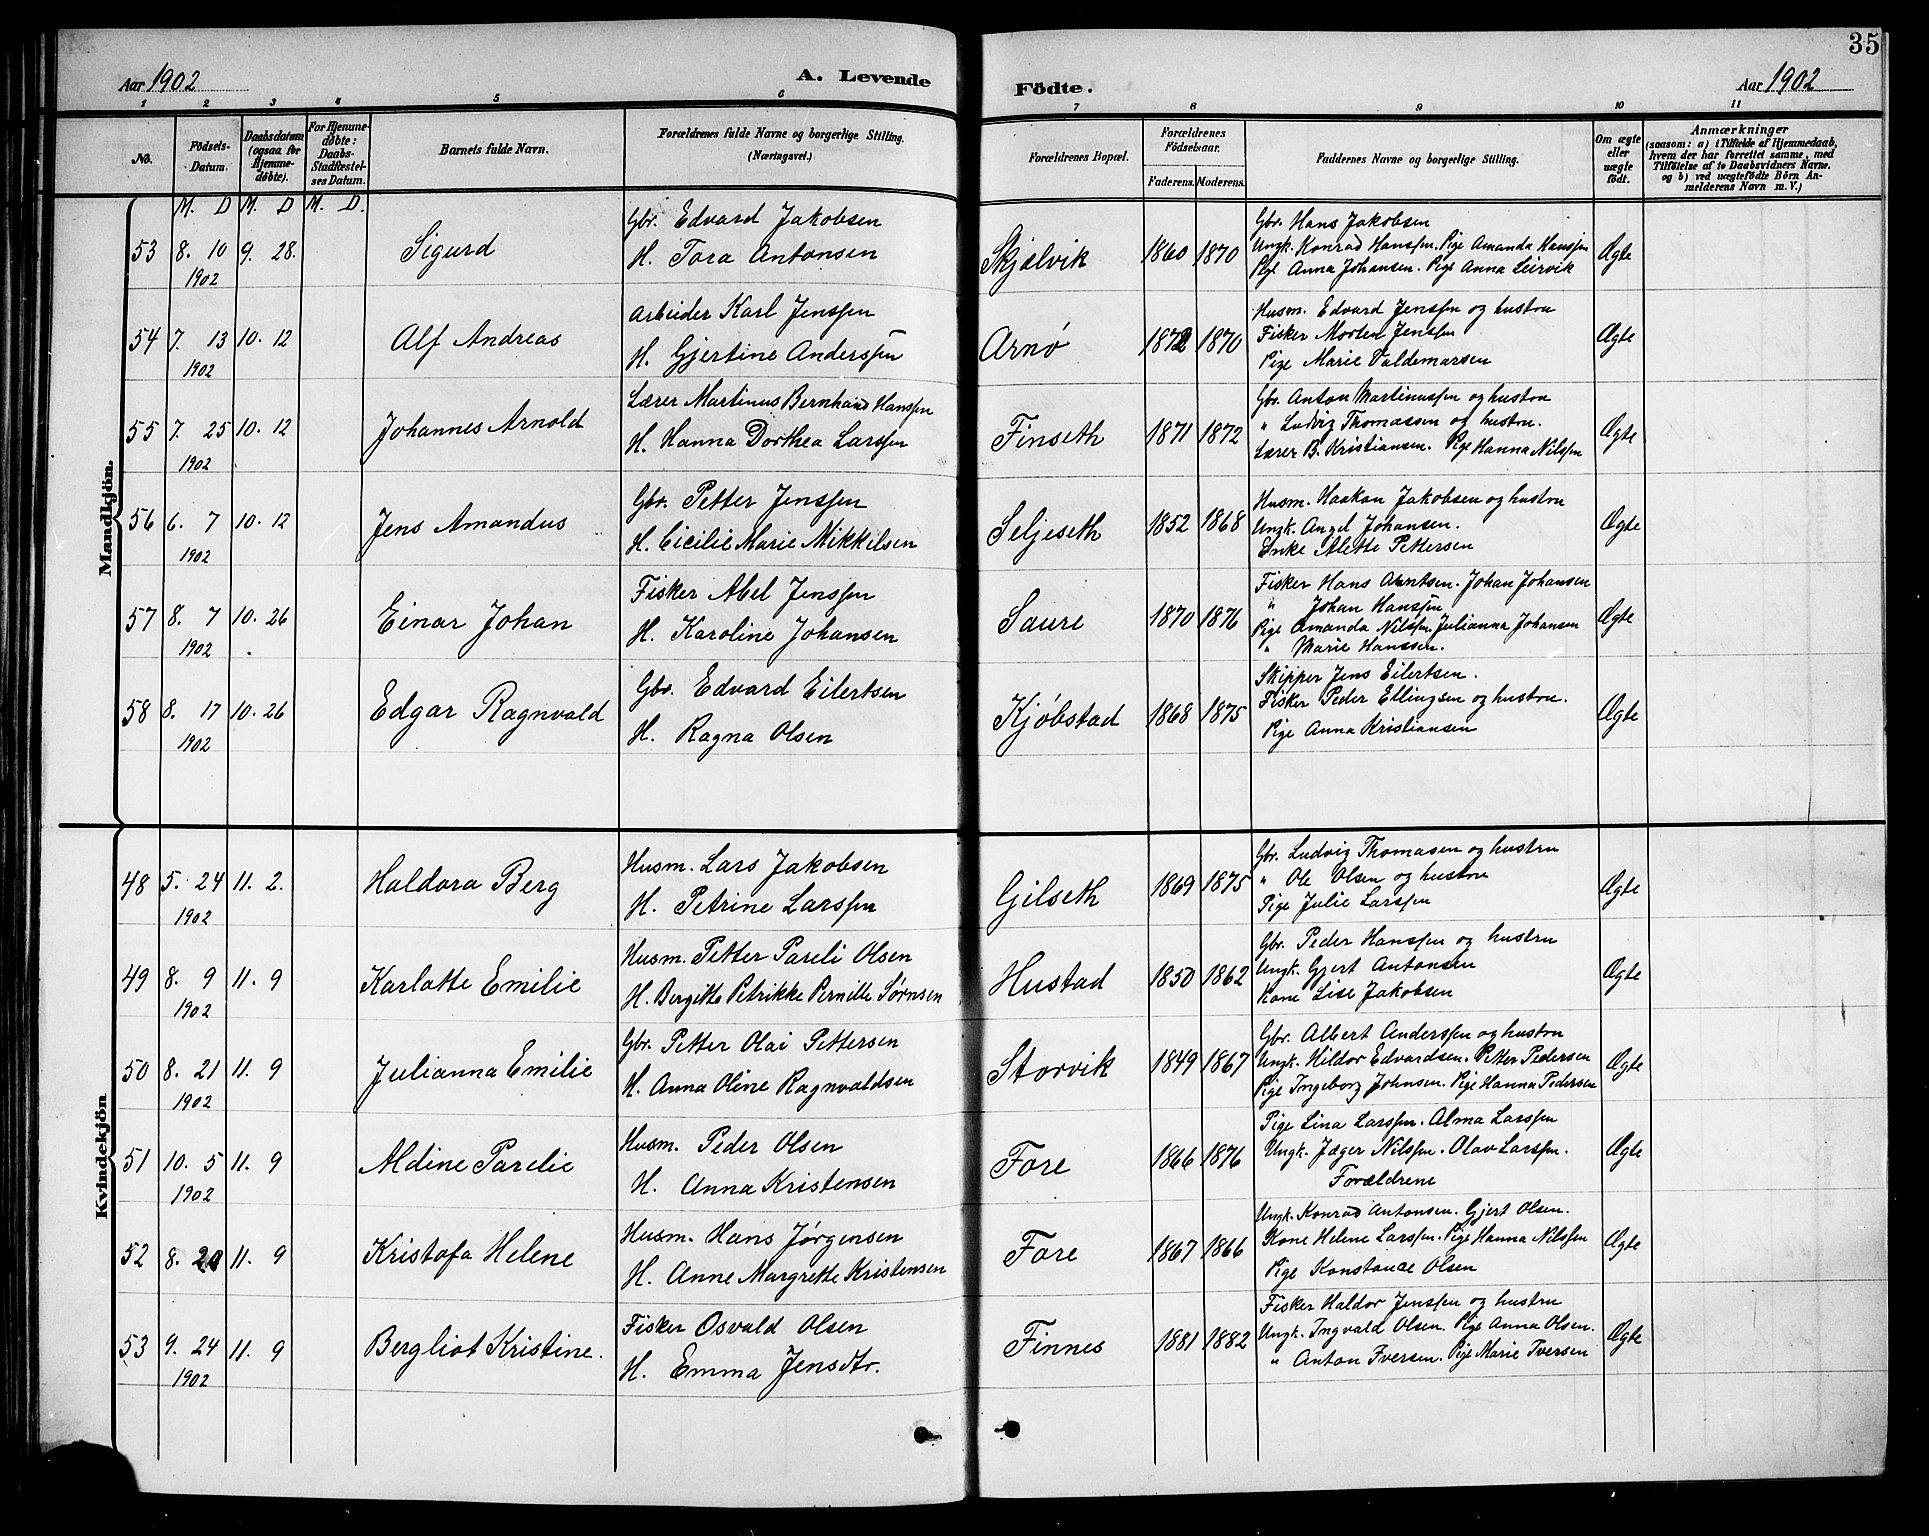 35
Aar 1902
A. Levende
Födte.
Aar 1902
1 2 3 4 5 6 7 8 9 10 11
No.
Födsels-Datum.
Daabsdatum (ogsaa for Hjemme-döbte).
For Hjemme-döbte: Daabs-Stadfæstel-ses Datum.
Barnets fulde Navn.
Forældrenes fulde Navne og borgerlige Stilling. (Næringsvei.)
Forældrenes Bopæl.
Forældrenes Födselsaar.
Faderens. Moderens.
Faddernes Navne og borgerlige Stilling.
Om ægte eller uægte födt.
Anmærkninger
(saasom: a) i Tilfælde af Hjemmedaab, hvem der har forrettet samme, med Tilföielse af to Daabsvidners Navne. og b) ved uægtefödte Börn Anmelderens Navn m. V.)
M. D M. D M. D.
Mandkjön.
53 8. 10 1902 9. 28. Sigurd
Gbr. Edvard Jakobsen
H. Tora Antonsen
Skjælvik 1860 1870
Gbr. Hans Jakobsen
Ungk. Konrad Hanssen. Pige Amanda Hanssen
Pige Anna Johansen. Pige Anna Leirvik
Ægte
54 7. 13 1902 10. 12 Alf Andreas
Arbeider Karl Jenssen
H. Gjertine Anderssen
Arnø 1872 1870
Husm. Edvard Jenssen og hustru
Fisker Morten Jenssen
Pige Marie Valdemarsen
Ægte
55 7. 25 1902 10. 12 Johannes Arnold
Lærer Martinus Bernhard Hanssen
H. Hanna Dorthea Larssen
Finseth 1871 1872
Gbr. Anton Martinussen og hustru
" Ludvig Thomassen og hustru.
Lærer B. Kristiansen. Pige Hanna Nilssen
Ægte
56 6. 7 1902 10. 12 Jens Amandus
Gbr. Petter Jenssen
H. Cicilie Marie Mikkelsen
Seljeseth 1852 1868
Husm. Haakon Jakobsen og hustru
Ungk. Angel Johansen.
Enke Alette Pettersen
Ægte
57 8. 7 1902 10. 26 Einar Johan
Fisker Abel Jenssen
H. Karoline Johansen
Saure 1870 1876
Fisker Hans Arntsen. Johan Johansen
" Johan Hanssen
Pige Amanda Nilssen. Julianna Johansen
" Marie Hanssen.
Ægte
58 8. 17 1902 10. 26 Edgar Ragnvald
Gbr. Edvard Eilertsen
H. Ragna Olsen
Kjøbstad 1868 1875
Skipper Jens Eilertsen.
Fisker Peder Ellingsen og hustru.
Pige Anna Kristiansen
Ægte
Kvindekjön
48 5. 24 1902 11. 2. Haldora Berg
Husm. Lars Jakobsen
H. Petrine Larssen
Gilseth 1869 1875
Gbr. Ludvig Thomasen og hustru
" Ole Olsen og hustru
Pige Julie Larssen
Ægte
49 8. 9 1902 11. 9 Karlotte Emilie
Husm. Petter Pareli Olsen
H. Bergitte Petrikke Pernille Sørnsen
Hustad 1850 1862
Gbr. Peder Hanssen og hustru
Ungk. Gjert Antonsen
Kone Lise Jakobsen
Ægte
50 8. 21 1902 11. 9 Julianna Emilie
Gbr. Petter Olai Pettersen
H. Anna Oline Ragnvaldsen
Storvik 1849 1867
Gbr. Albert Anderssen og hustru
Ungk. Hildor Edvardsen. Petter Pedersen
Pige Ingeborg Johnsen. Pige Hanna Pedersen
Ægte
51 10. 5 1902 11. 9 Aldine Parelie
Husm. Peder Olsen
H. Anna Kristensen
Fore 1866 1876
Pige Lina Larssen. Alma Larssen
Ungk. Jæger Nilssen. Olav Larssen.
Forældrene
Ægte
52 8. 20 11. 9 Kristofa Helene
Husm. Hans Jørgensen
H. Anne Margrette Kristensen
Fore 1867 1866
Ungk. Konrad Antonsen. Gjert Olsen.
Kone Helene Larssen. Pige Hanna Nilssen
Pige Konstance Olsen
Ægte
53 9. 24 1902 11. 9 Bergliot Kristine.
Fisker Osvald Olsen
H. Emma Jensdtr.
Finnes 1881 1882
Fisker Haldor Jenssen og hustru
Ungk. Ingvald Olsen. Pige Anna Olsen.
" Anton Iversen. Pige Marie Iversen
Ægte